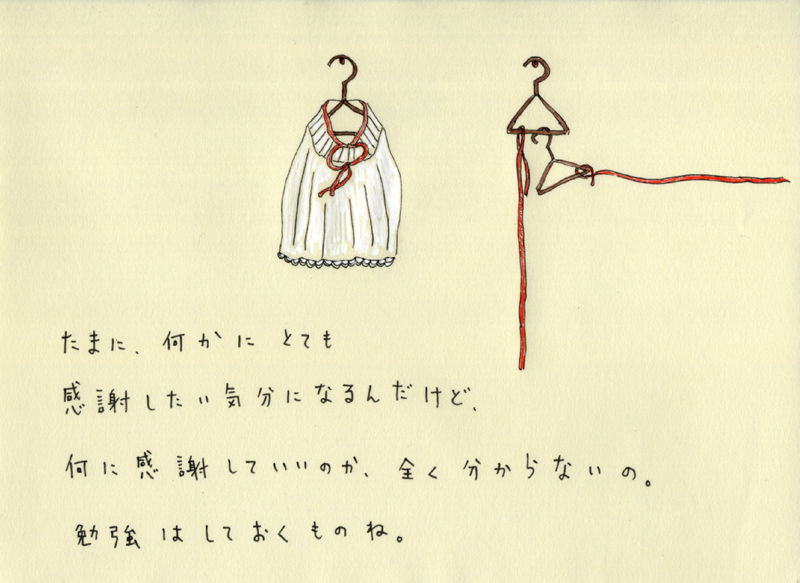 たまに、何かに とても
感謝したい気分になるんだけど、
何に感謝していいのか、全く分からないの。
勉強はしておくものね。